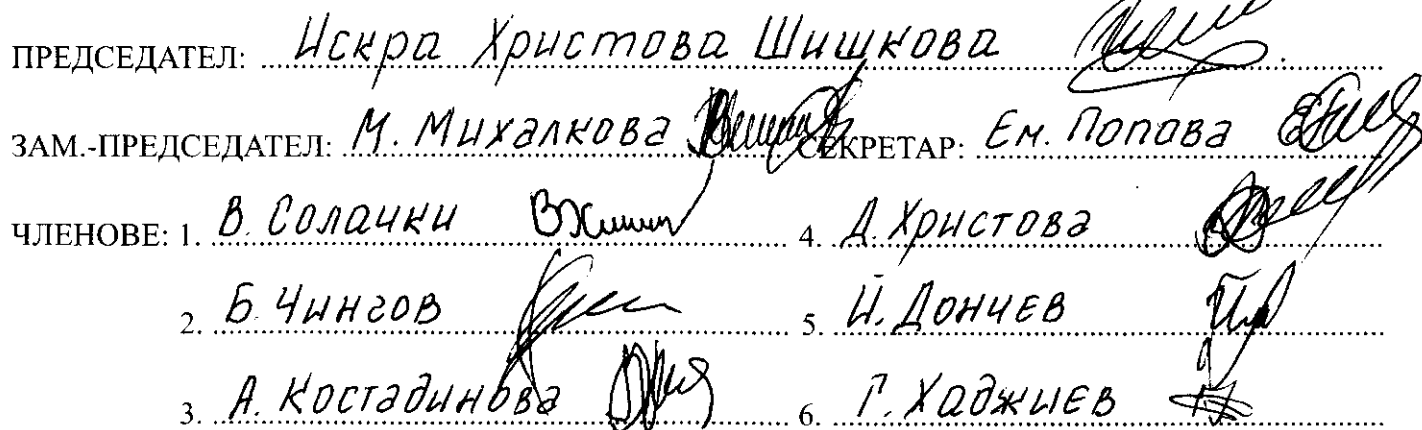 ПРЕДСЕДАТЕЛ: Искра Христова Шишкова
ЗАМ.-ПРЕДСЕДАТЕЛ: М. Михалкова СЕКРЕТАР: Ем. Попова
ЧЛЕНОВЕ: 1. В. Солачки 4. Д. Христова
2. Б. Чингов 5. Й. Дончев
3. А. Костадинова 6. Г. Хаджиев